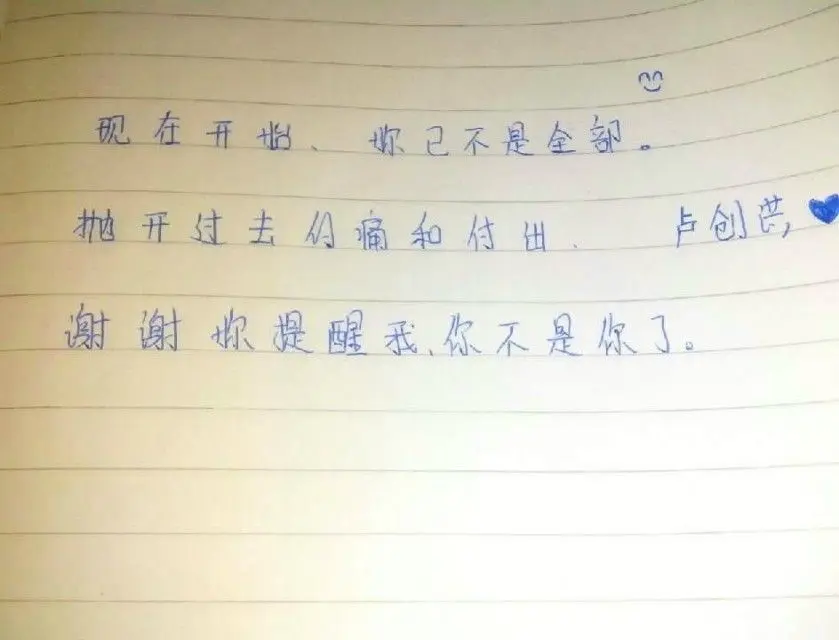 现在开始、妳已不是全部。
抛开过去的痛和付出. 卢创芸,
谢谢妳提醒我、你不是你了。